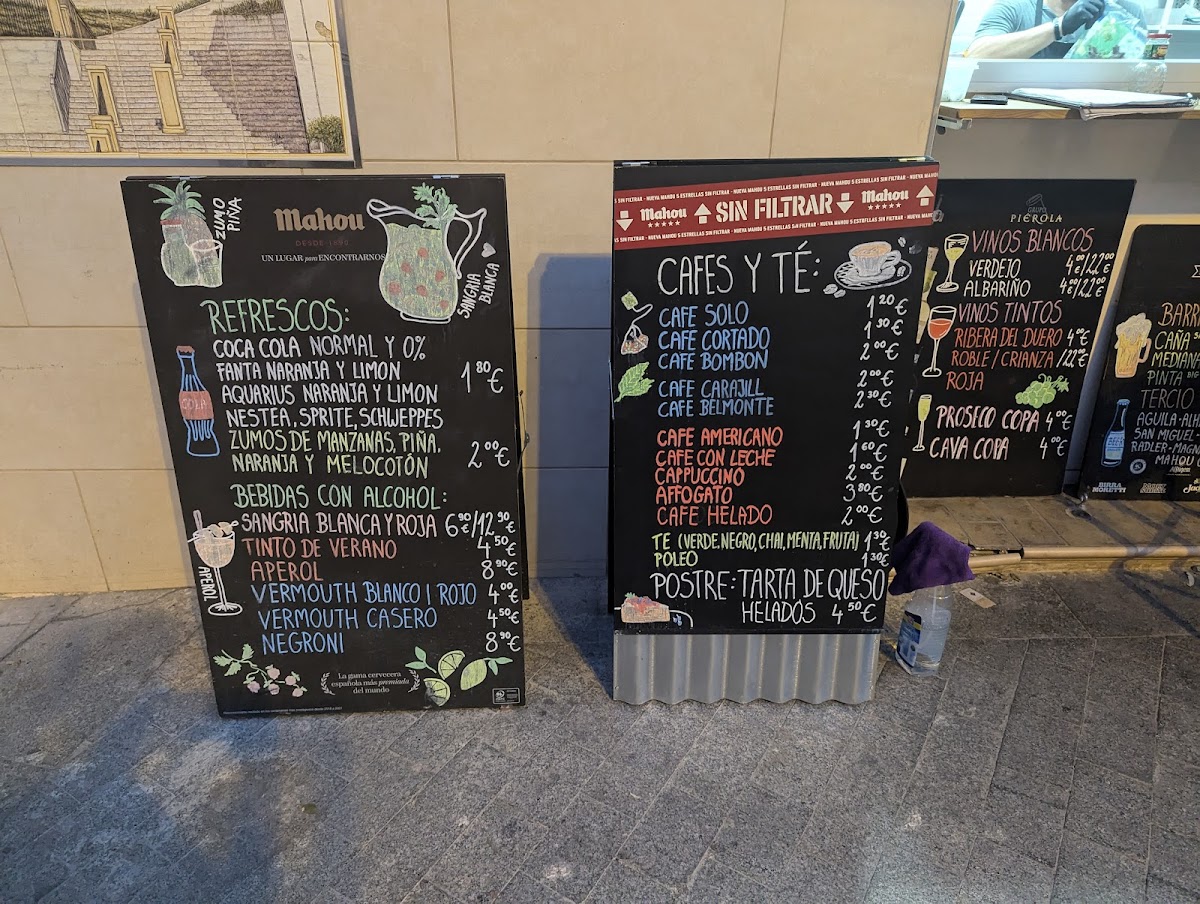 ZUMO PIÑA
Mahou
DESDE 1890
UN LUGAR para ENCONTRARNOS
SANGRIA BLANCA
REFRESCOS:
COCA COLA NORMAL Y 0%
FANTA NARANJA Y LIMON
AQUARIUS NARANJA Y LIMON
NESTEA, SPRITE, SCHWEPPES
1 80€
ZUMOS DE MANZANAS, PIÑA,
NARANJA Y MELOCOTÓN
2 00€
COLA
BEBIDAS CON ALCOHOL:
SANGRIA BLANCA Y ROJA 6 90€/12 90€
TINTO DE VERANO 4 50€
APEROL 8 90€
VERMOUTH BLANCO I ROJO 4 00€
VERMOUTH CASERO 4 50€
NEGRONI 8 90€
APEROL
La gama cervecera
española más premiada
del mundo
NUEVA MAHOU 5 ESTRELLAS SIN FILTRAR - NUEVA MAHOU 5 ESTRELLAS SIN FILTRAR
Mahou SIN FILTRAR Mahou
NUEVA MAHOU 5 ESTRELLAS SIN FILTRAR - NUEVA MAHOU 5 ESTRELLAS SIN FILTRAR
CAFES Y TÉ:
CAFE SOLO 1 20€
CAFE CORTADO 1 30€
CAFE BOMBON 2 00€
CAFE CARAJILL 2 00€
CAFE BELMONTE 2 30€
CAFE AMERICANO 1 30€
CAFE CON LECHE 1 60€
CAPPUCCINO 2 00€
AFFOGATO 3 80€
CAFE HELADO 2 00€
TE (VERDE, NEGRO, CHAI, MENTA, FRUTA) 1 30€
POLEO 1 30€
POSTRE: TARTA DE QUESO
HELADOS 4 50€
GRUPO
PIÉROLA
VINOS BLANCOS
VERDEJO 4 00€/22 00€
ALBARIÑO 4 00€/22 00€
VINOS TINTOS
RIBERA DEL DUERO 4 00€
ROBLE / CRIANZA /22 00€
ROJA
PROSECO COPA 4 00€
CAVA COPA 4 00€
BARR
CAÑA
MEDIAN
PINTA
TERCIO
AGUILA-ALHA
SAN MIGUEL
RADLER-MAGN
MAHOU
BEER
BIRRA
MORETTI